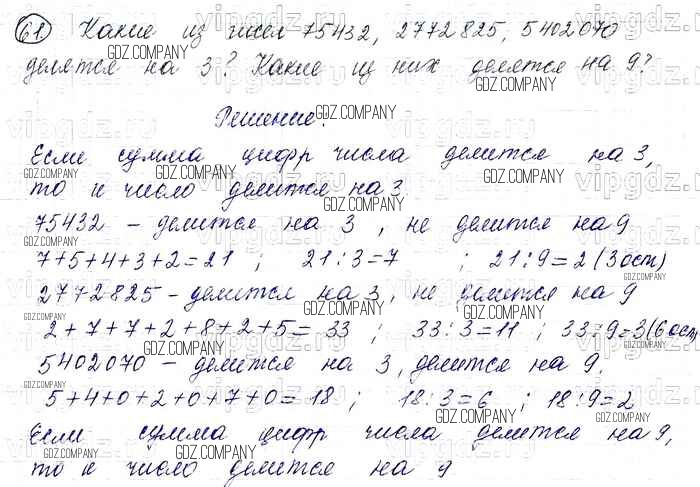 61 Какие из чисел 75432, 2772825, 5402070
делятся на 3? Какие из них делятся на 9?
Решение.
Если сумма цифр числа делится на 3,
то и число делится на 3
75432 – делится на 3, не делится на 9
7+5+4+3+2=21 ; 21:3=7 ; 21:9=2 (3 ост)
2772825 – делится на 3, не делится на 9
2+7+7+2+8+2+5= 33 ; 33:3=11 ; 33:9=3(6 ост
5402070 – делится на 3, делится на 9.
5+4+0+2+0+7+0=18 ; 18:3=6 ; 18:9=2
Если сумма цифр числа делится на 9,
то и число делится на 9
GDZ.COMPANY
vipgdz.ru